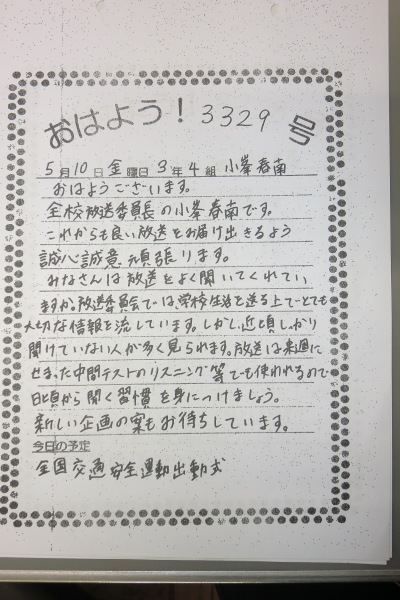 おはよう！3329号
5月10日金曜日3年4組 小峯春南
おはようございます。
全校放送委員長の小峯春南です。
これからも良い放送をお届け出きるよう
誠心誠意頑張ります。
みなさんは放送をよく聞いてくれてい
ますか。放送委員会では、学校生活を送る上で、とても
大切な情報を流しています。しかし、近頃しっかり
聞けていない人が多く見られます。放送は来週に
せまった中間テストのリスニング等でも使われるので
日頃から聞く習慣を身につけましょう。
新しい企画の案もお待ちしています。
今日の予定
全国交通安全運動出動式